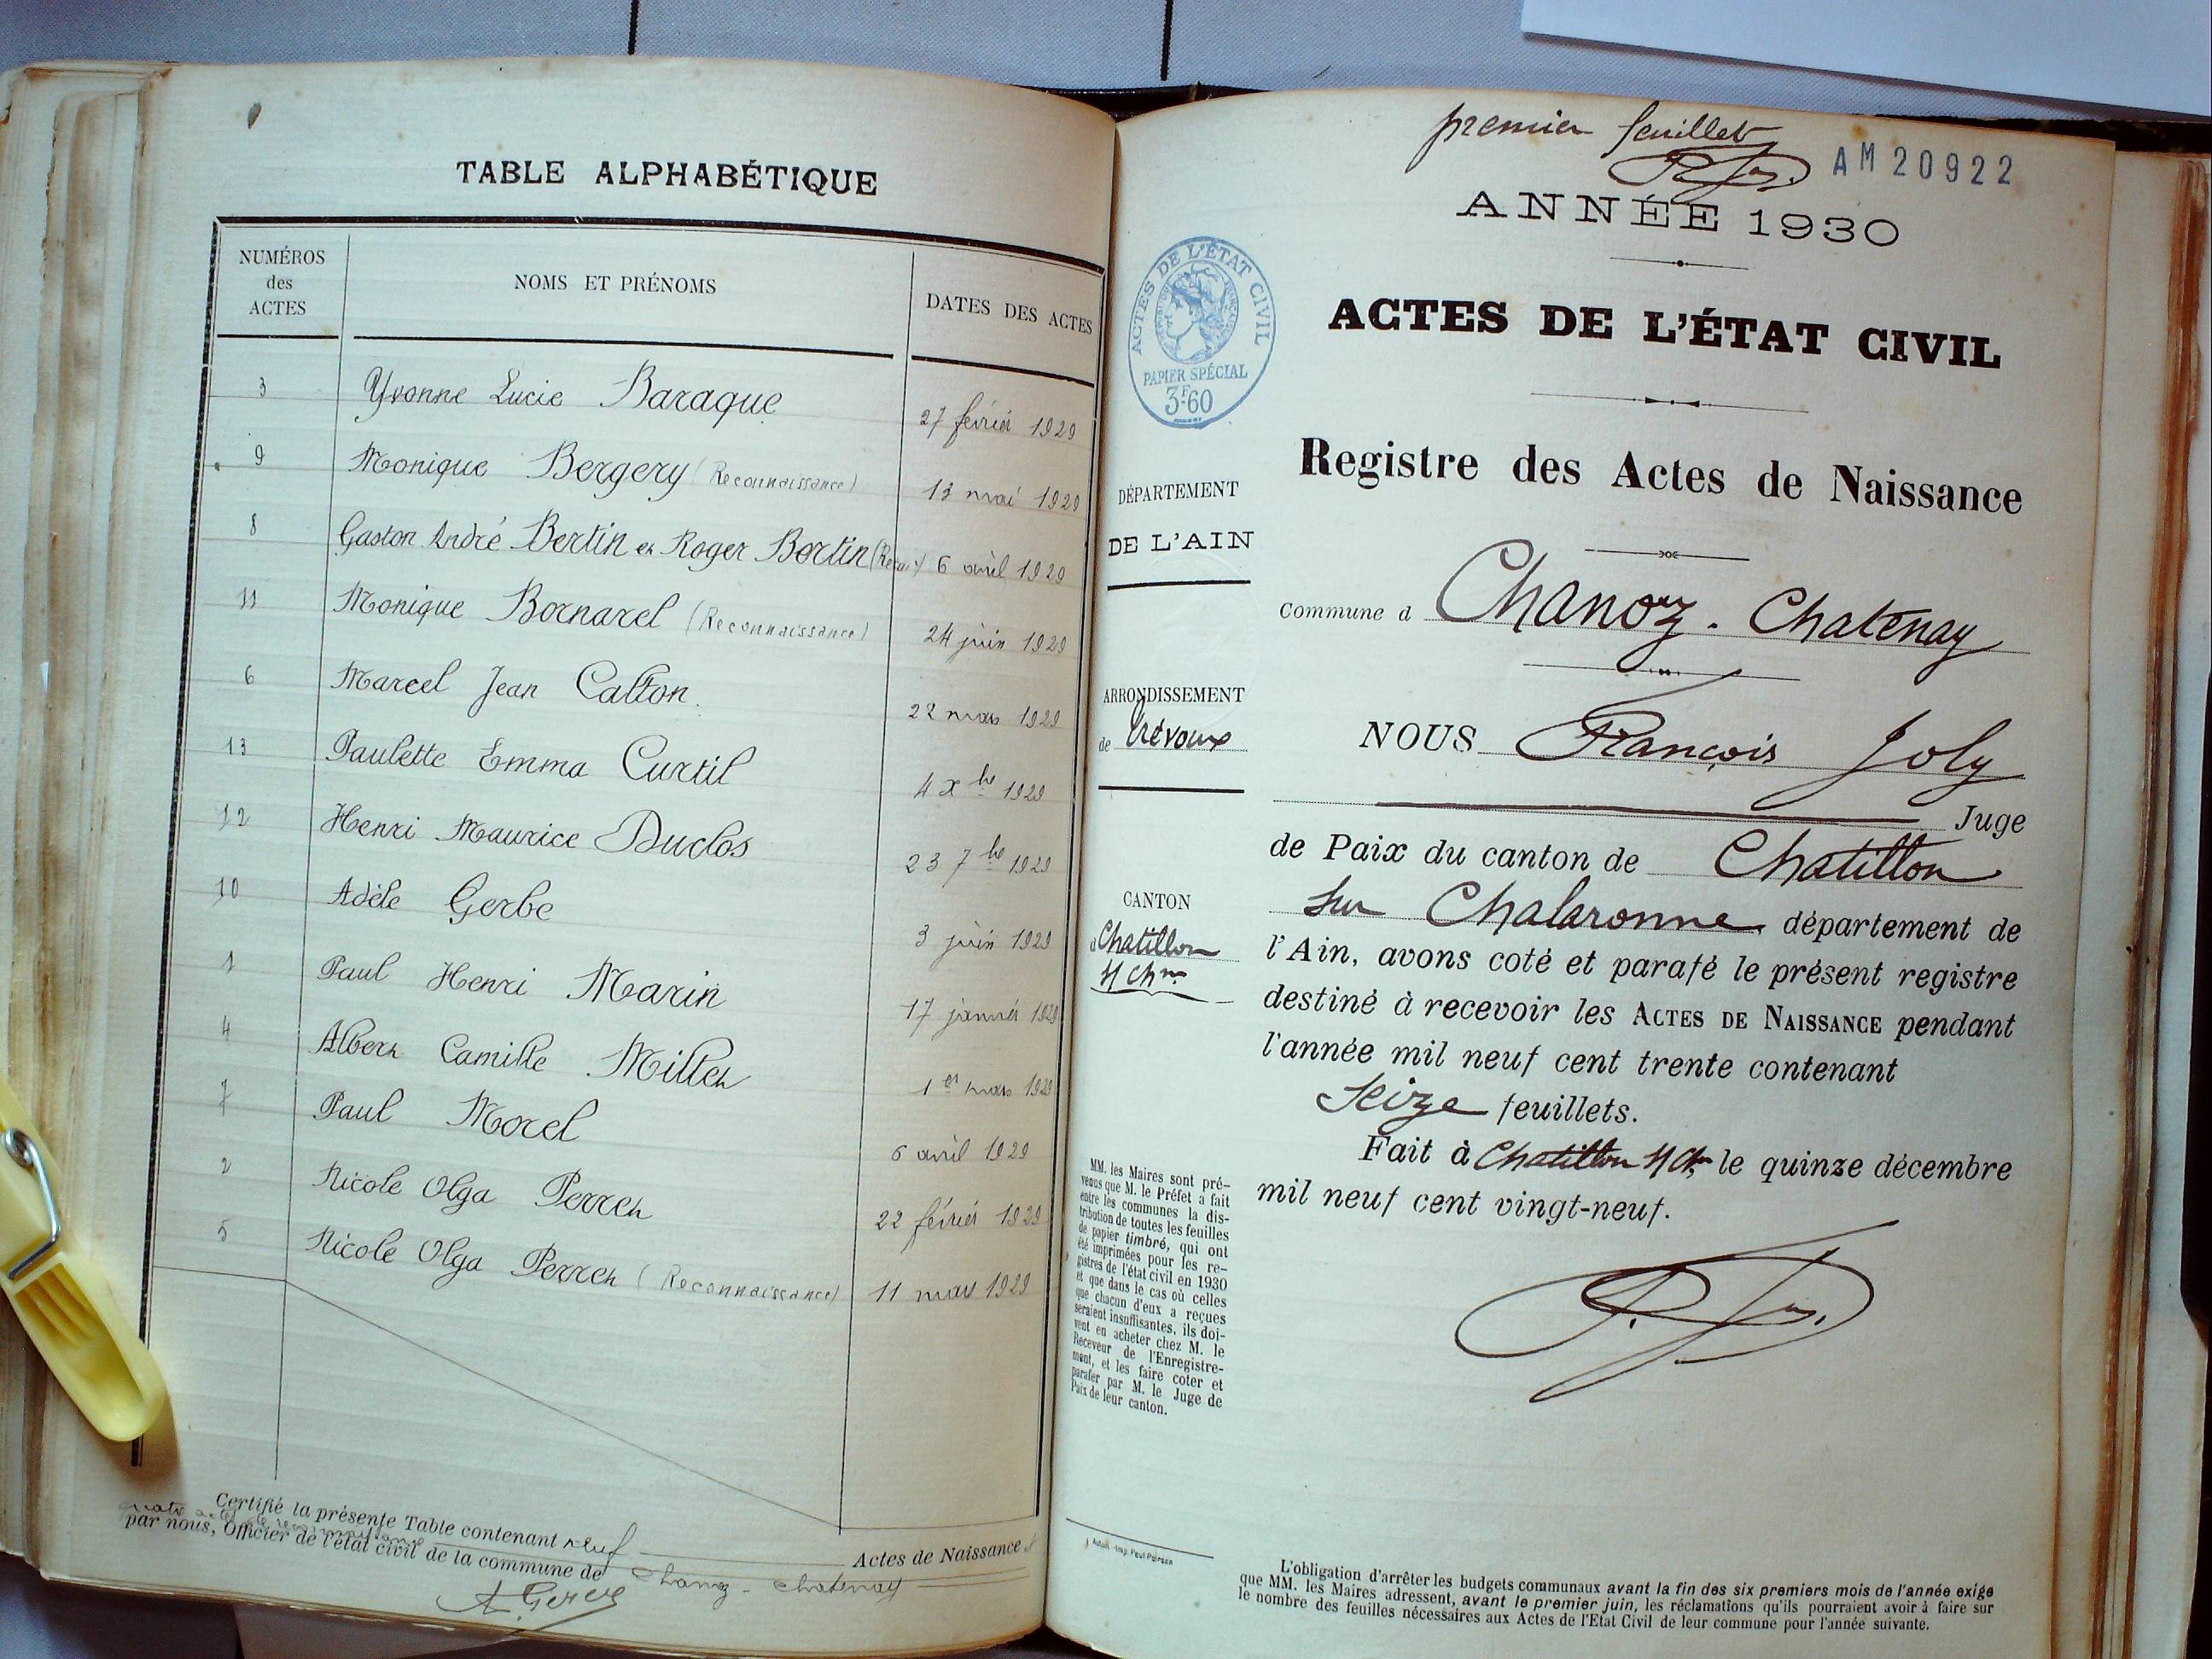 TABLE ALPHABÉTIQUE
NUMÉROS des ACTES
NOMS ET PRÉNOMS
DATES DES ACTES
3 Yvonne Lucie Baraque 27 février 1929
9 Monique Bergery (Reconnaissance) 13 mai 1929
8 Gaston André Bertin et Roger Bertin 6 avril 1929
11 Monique Bornarel (Reconnaissance) 24 juin 1929
6 Marcel Jean Calton 22 mars 1929
13 Paulette Emma Curtil 4 Xbre 1929
12 Henri Maurice Duclos 23 7bre 1929
10 Adèle Gerbe 3 juin 1929
1 Paul Henri Marin 17 janvier 1929
4 Albert Camille Millet 1er mars 1929
7 Paul Morel 6 avril 1929
2 Nicole Olga Perret 22 février 1929
5 Nicole Olga Perret (Reconnaissance) 11 mars 1929
Certifié la présente Table contenant neuf Actes de Naissance
quatre actes de reconnaissance
par nous, Officier de l'état civil de la commune de Chanoz-Chatenay
premier feuillet
AM 20922
ANNÉE 1930
ACTES DE L'ÉTAT CIVIL
PAPIER SPÉCIAL
3F60
ACTES DE L'ÉTAT CIVIL
Registre des Actes de Naissance
DÉPARTEMENT
DE L'AIN
Commune d Chanoz-Chatenay
ARRONDISSEMENT
de Trévoux
NOUS François Joly
Juge
de Paix du canton de Chatillon
sur Chalaronne département de
CANTON
d Chatillon
s/ Chne
l'Ain, avons coté et parafé le présent registre
destiné à recevoir les ACTES DE NAISSANCE pendant
l'année mil neuf cent trente contenant
Seize feuillets.
Fait à Chatillon s/ Chne le quinze décembre
mil neuf cent vingt-neuf.
MM. les Maires sont pré-
venus que M. le Préfet a fait
entre les communes la dis-
tribution de toutes les feuilles
de papier timbré, qui ont
été imprimées pour les re-
gistres de l'état civil en 1930
et que dans le cas où celles
que chacun d'eux a reçues
seraient insuffisantes, ils doi-
vent en acheter chez M. le
Receveur de l'Enregistre-
ment, et les faire coter et
parafer par M. le Juge de
Paix de leur canton.
Imp. Paul Poirson
L'obligation d'arrêter les budgets communaux avant la fin des six premiers mois de l'année exige
que MM. les Maires adressent, avant le premier juin, les réclamations qu'ils pourraient avoir à faire sur
le nombre des feuilles nécessaires aux Actes de l'Etat Civil de leur commune pour l'année suivante.